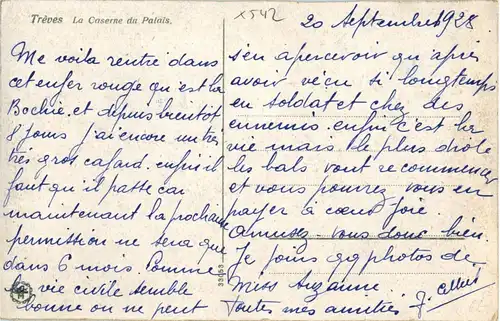 Trèves La Caserne du Palais.
X542
20 Septembre 1928
Me voila rentré dans
cet enfer rouge qu'est la
Bochie, et depuis bientôt
8 jours j'ai encore un très
très gros cafard. enfin il
faut qu'il passe car
maintenant la prochaine
permission ne sera que
dans 6 mois. Comme
la vie civile semble
bonne on ne peut
s'en apercevoir qu'après
avoir vécu si longtemps
en soldat et chez des
ennemis. enfin c'est la
vie mais le plus drole
les bals vont recommencer
et vous pourrez vous en
payer à cœur joie.
Amusez-vous donc bien.
Je joins qq photos de
Miss Suzanne.
Toutes mes amitiés